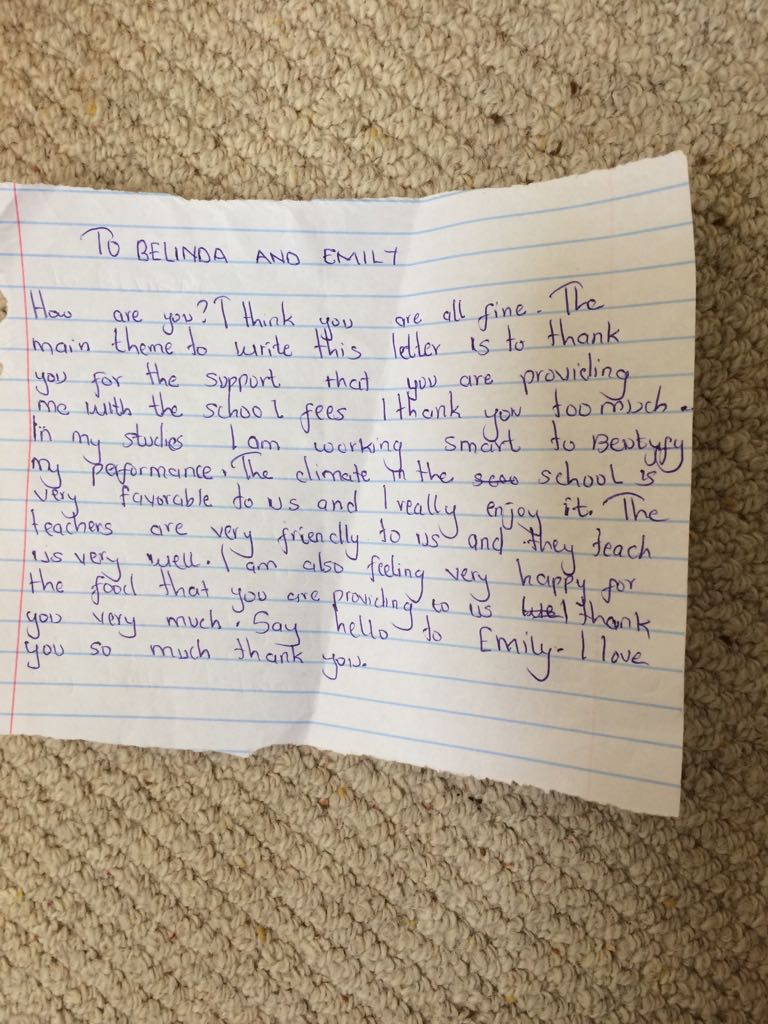 TO BELINDA AND EMILY
How are you? I think you are all fine. The
main theme to write this letter is to thank
you for the support that you are providing
me with the school fees I thank you too much.
In my studies I am working smart to Beutyfy
my performance. The climate in the school is
very favorable to us and I really enjoy it. The
teachers are very friendly to us and they teach
us very well. I am also feeling very happy for
the food that you are providing to us I thank
you very much. Say hello to Emily. I love
you so much thank you.